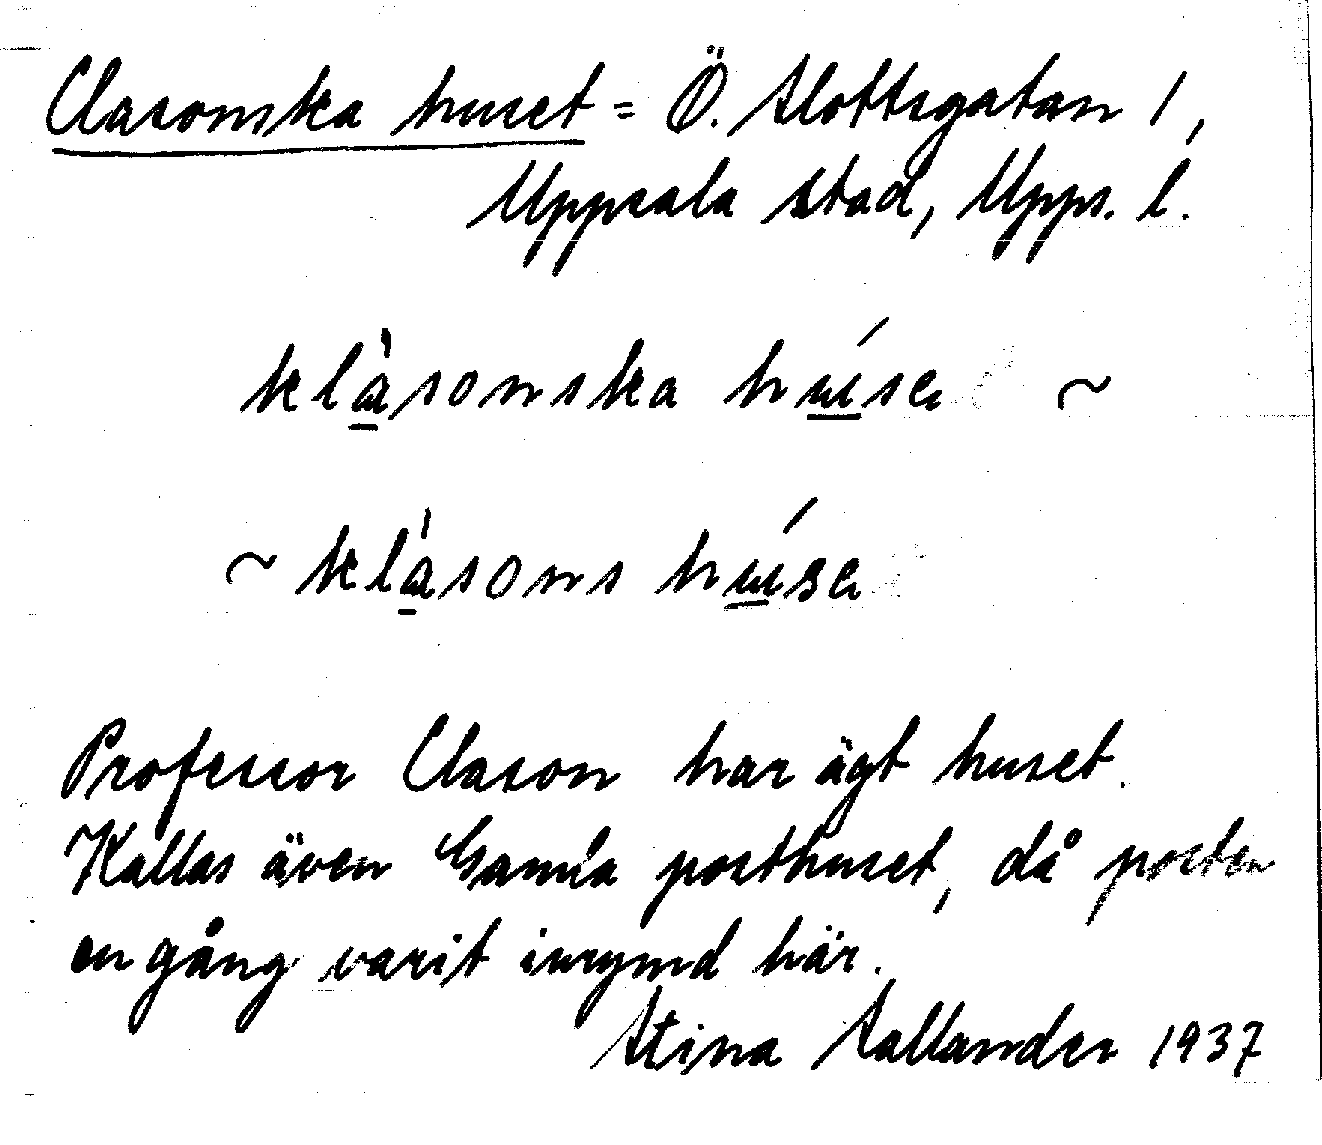 Clasonska huset = Ö. Slottsgatan 1,
Uppsala stad, Upps. l.
klàsonska húsɛ ~
~ klàsons húsɛ
Professor Clason har ägt huset.
Kallas även Gamla posthuset, då posten
en gång varit inrymd här.
Stina Sallander 1937